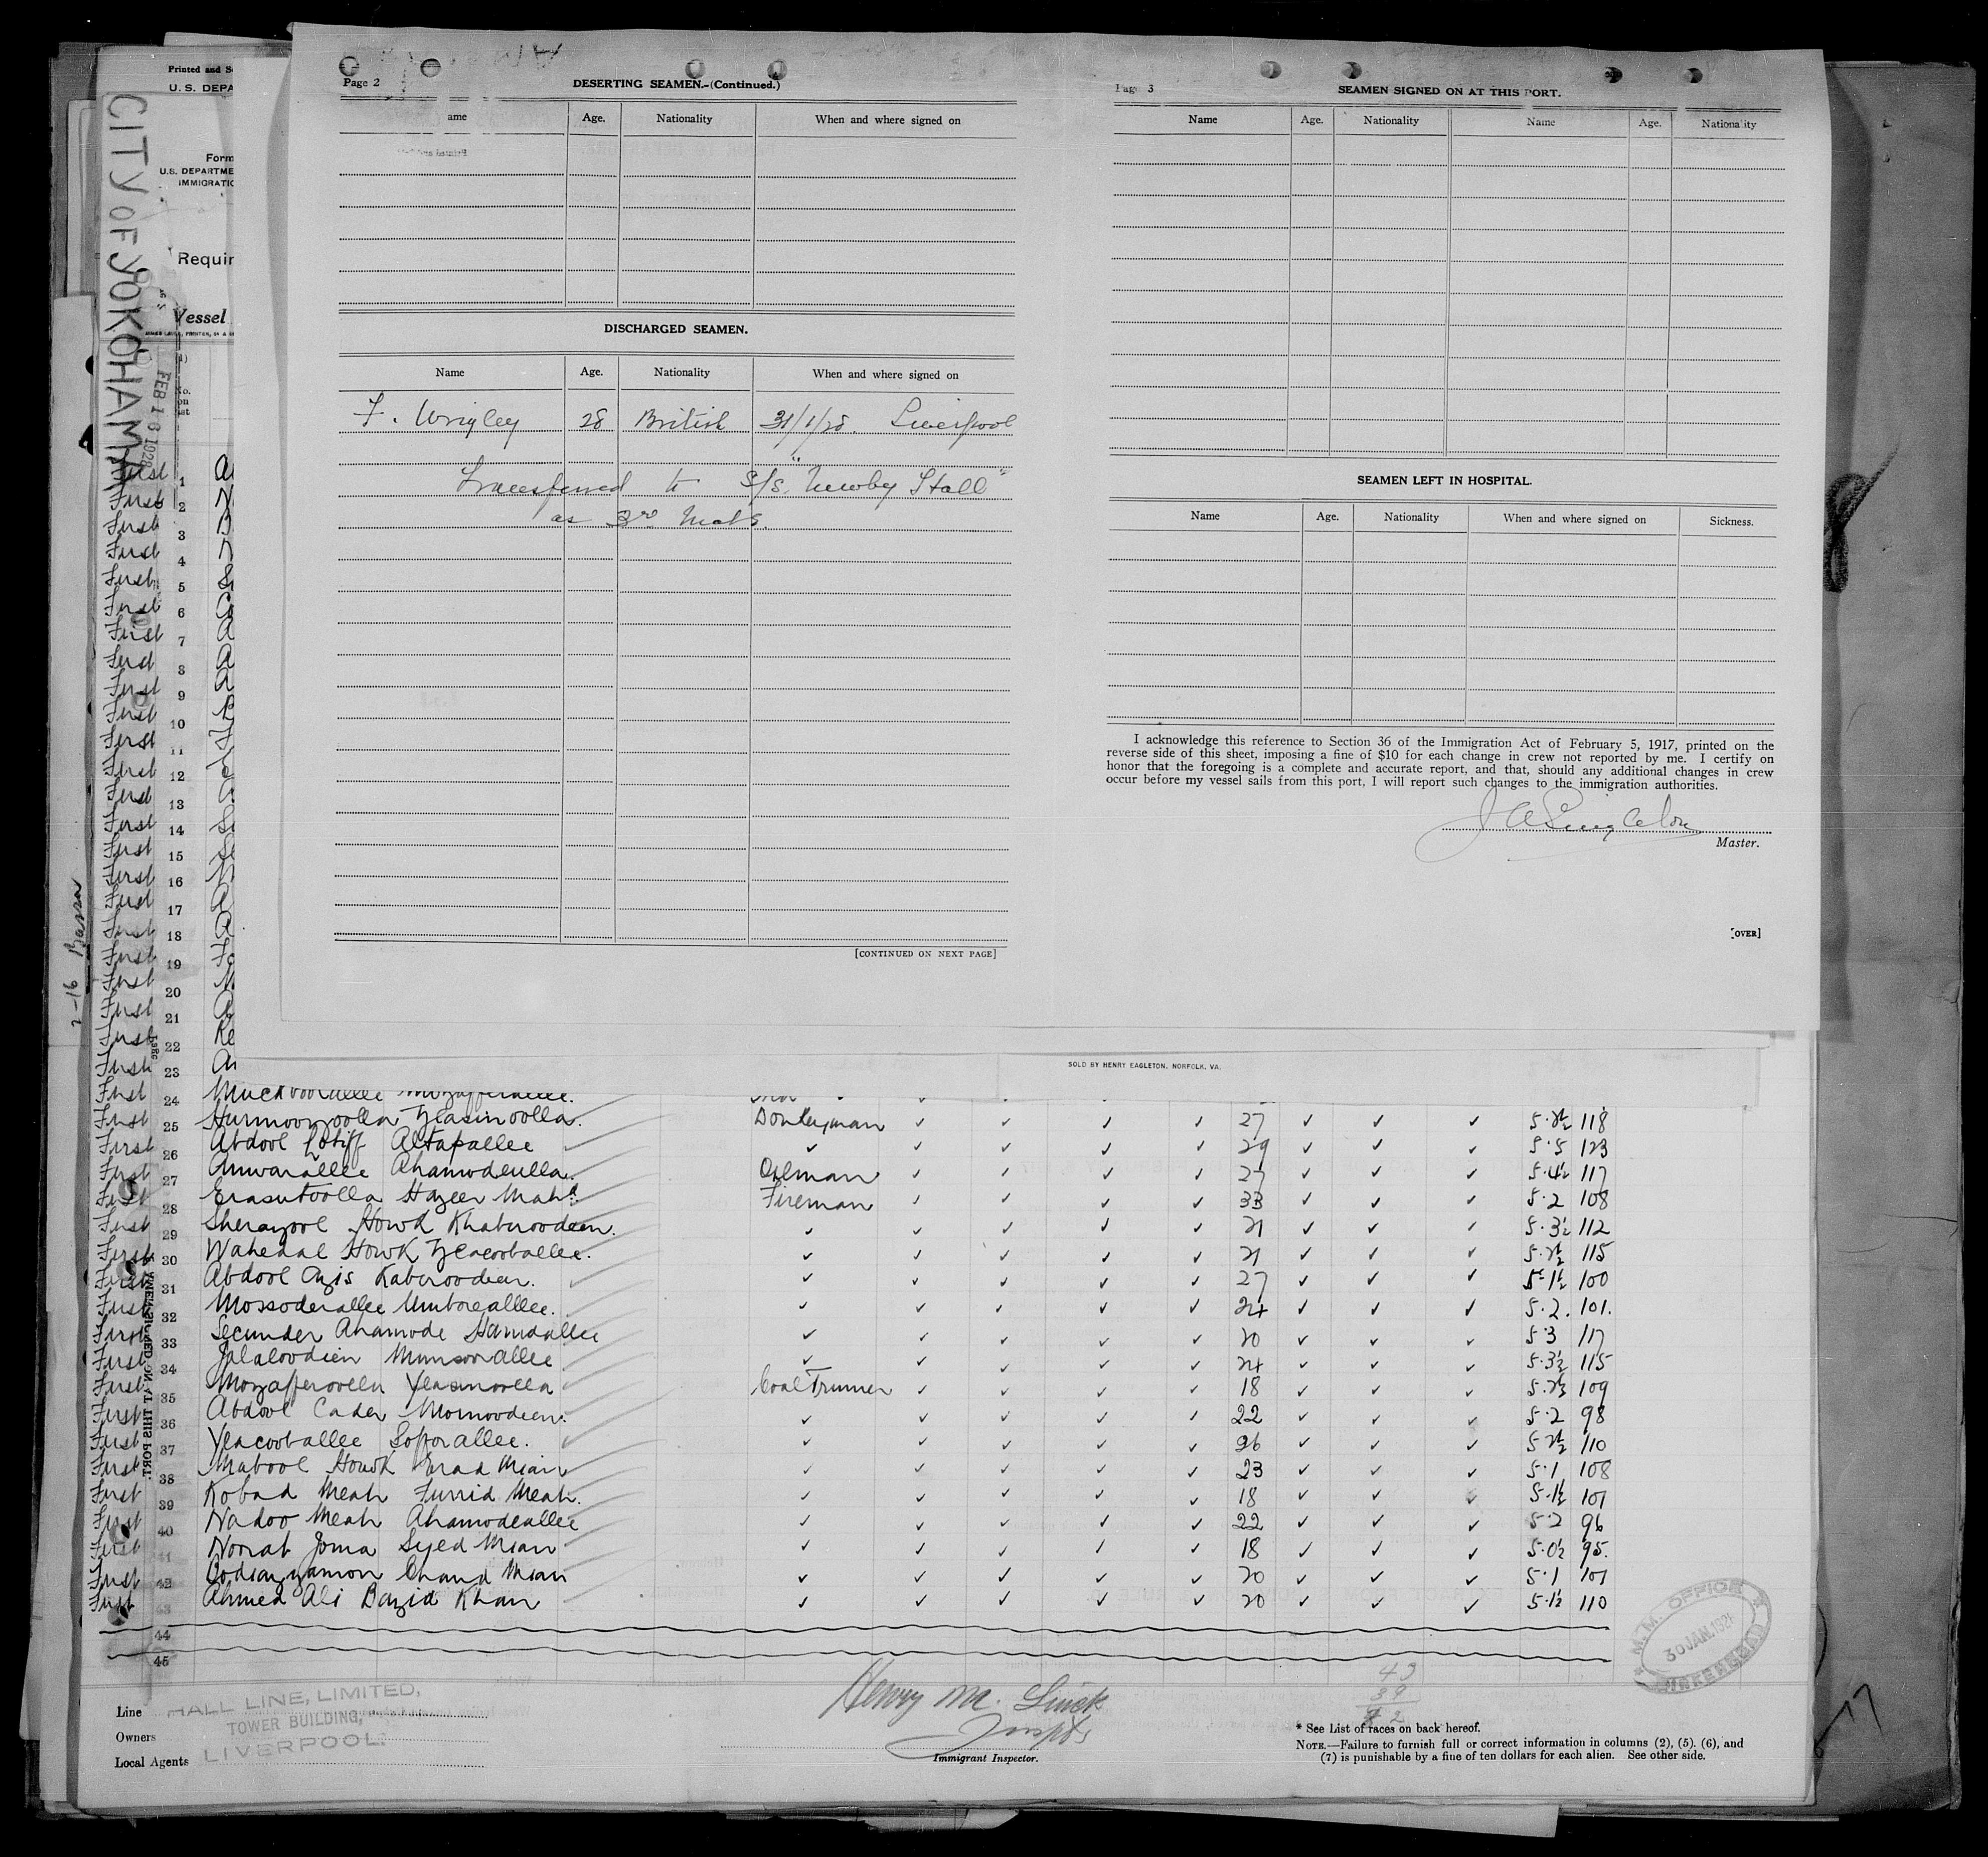 Page 2
DESERTING SEAMEN.-(Continued.)
ame Age. Nationality When and where signed on
DISCHARGED SEAMEN.
Name Age. Nationality When and where signed on
F. Wrigley 28 British 31/1/28. Liverpool
Transferred to S/S. "Newby Hall"
as 3rd Mate.
[CONTINUED ON NEXT PAGE]
Page 3
SEAMEN SIGNED ON AT THIS PORT.
Name Age. Nationality Name Age. Nationality
SEAMEN LEFT IN HOSPITAL.
Name Age. Nationality When and where signed on Sickness.
I acknowledge this reference to Section 36 of the Immigration Act of February 5, 1917, printed on the
reverse side of this sheet, imposing a fine of $10 for each change in crew not reported by me. I certify on
honor that the foregoing is a complete and accurate report, and that, should any additional changes in crew
occur before my vessel sails from this port, I will report such changes to the immigration authorities.
J A Singleton
Master.
[OVER]
SOLD BY HENRY EAGLETON, NORFOLK, VA.
Printed and S
U. S. DEPA
Form
U.S. DEPARTME
IMMIGRATIO
Requir
Vessel
CITY OF YOKOHAMA
FEB 16 1928
2-16 Basra
First 1
First 2
First 3
First 4
First 5
First 6
First 7
First 8
First 9
First 10
First 11
First 12
First 13
First 14
First 15
First 16
First 17
First 18
First 19
First 20
First 21
First 22
First 23
First 24
First 25 Hurmoozoolla Yeasinoolla. Donkeyman ✓ ✓ ✓ ✓ 27 ✓ ✓ ✓ 118
First 26 Abdool Lotiff Altafallee ✓ ✓ ✓ ✓ ✓ 29 ✓ ✓ ✓ 5·5 123
First 27 Anwarallee Ahamodeulla. Oilman ✓ ✓ ✓ ✓ 27 ✓ ✓ ✓ 5·4½ 117
First 28 Erasutoolla Hazeer Mahd. Fireman ✓ ✓ ✓ ✓ 33 ✓ ✓ ✓ 5·2 108
First 29 Sherazool Howk Khaberoodeen. ✓ ✓ ✓ ✓ ✓ 21 ✓ ✓ ✓ 5·3½ 112
First 30 Wahedal Howk Yeacooballee. ✓ ✓ ✓ ✓ ✓ 21 ✓ ✓ ✓ 5·2½ 115
First 31 Abdool Azis Kaberoodeen. ✓ ✓ ✓ ✓ ✓ 27 ✓ ✓ ✓ 5·1½ 100
First 32 Mossoderallee Umboreallee. ✓ ✓ ✓ ✓ ✓ 24 ✓ ✓ ✓ 5·2. 101.
First 33 Secunder Ahamode Hamdallee ✓ ✓ ✓ ✓ ✓ 20 ✓ ✓ ✓ 5·3 117
First 34 Jalaloodien Munsoorallee ✓ ✓ ✓ ✓ ✓ 24 ✓ ✓ ✓ 5·3½ 115
First 35 Mozafferoolla Yeasinoolla Coal Trimmer ✓ ✓ ✓ ✓ 18 ✓ ✓ ✓ 109
First 36 Abdool Cader Momoodeen. ✓ ✓ ✓ ✓ ✓ 22 ✓ ✓ ✓ 5·2 98
First 37 Yeacooballee Sofforallee. ✓ ✓ ✓ ✓ ✓ 26 ✓ ✓ ✓ 5·2½ 110
First 38 Mabool Howk Erad Mian ✓ ✓ ✓ ✓ ✓ 23 ✓ ✓ ✓ 5·1 108
First 39 Kobad Meah Furrid Meah. ✓ ✓ ✓ ✓ ✓ 18 ✓ ✓ ✓ 5·1½ 101
First 40 Nadoo Meah Ahamodeallee ✓ ✓ ✓ ✓ ✓ 22 ✓ ✓ ✓ 5·2 96
First 41 Noorat Joma Syed Mian ✓ ✓ ✓ ✓ ✓ 18 ✓ ✓ ✓ 5·0½ 95.
First 42 Bodiazzamon Chand Mian ✓ ✓ ✓ ✓ ✓ 20 ✓ ✓ ✓ 5·1 101
First 43 Ahmed Ali Bazid Khan ✓ ✓ ✓ ✓ ✓ 20 ✓ ✓ ✓ 5·1½ 110
44
45
M. M. OFFICE
30 JAN. 192
BIRKENHEAD
43
39
Line HALL LINE, LIMITED,
Owners TOWER BUILDING,
Local Agents LIVERPOOL.
Henry M. Linck
Inspt
Immigrant Inspector.
* See List of races on back hereof.
NOTE.—Failure to furnish full or correct information in columns (2), (5), (6), and
(7) is punishable by a fine of ten dollars for each alien. See other side.